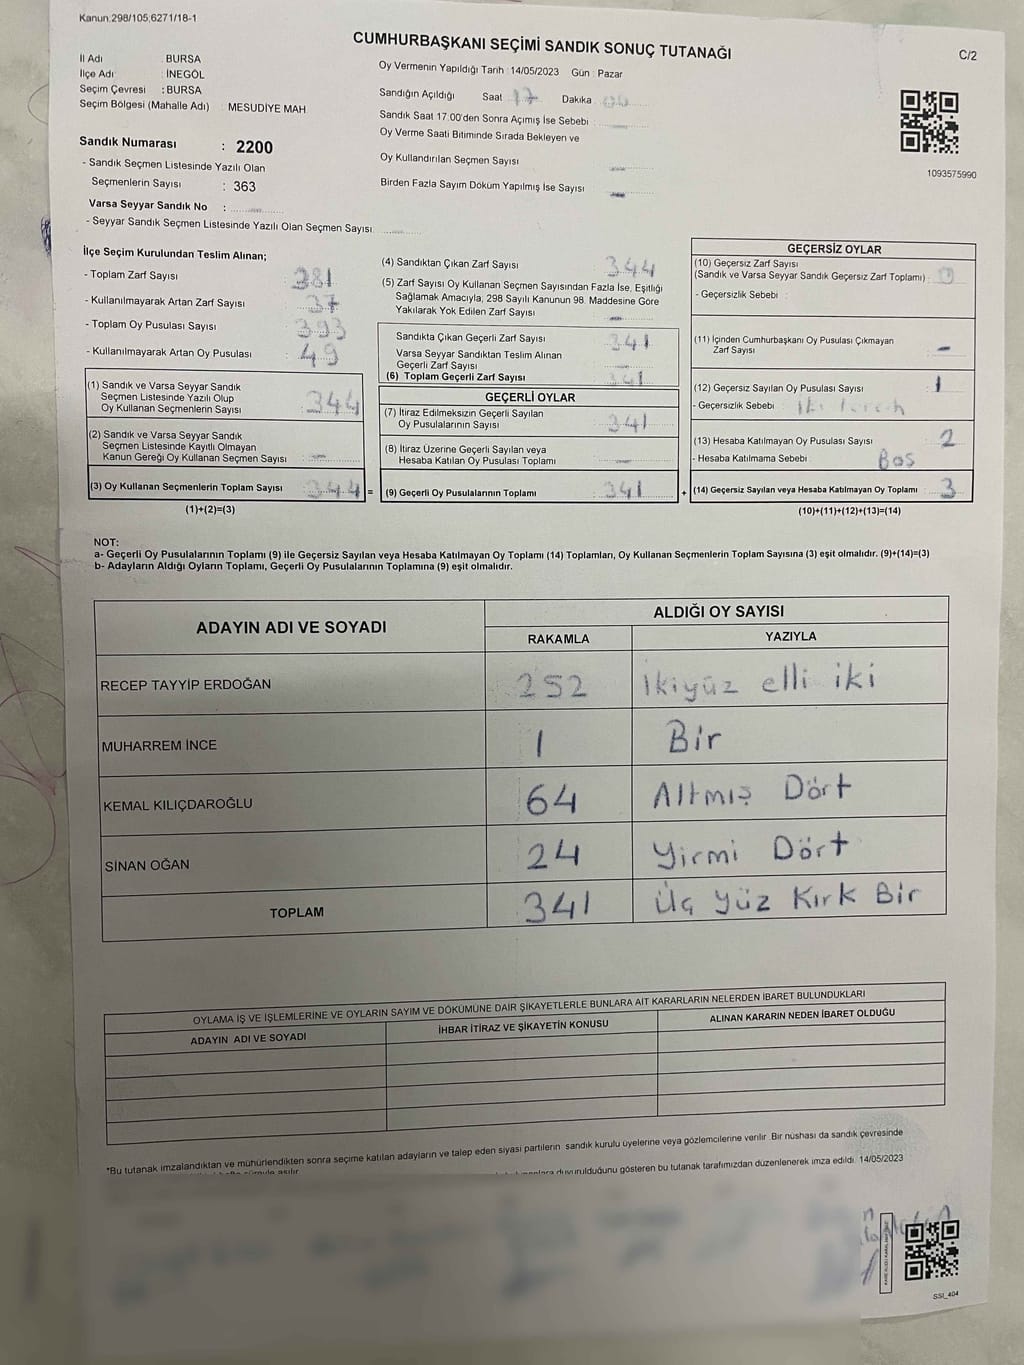 Kanun:298/105,6271/18-1
CUMHURBAŞKANI SEÇİMİ SANDIK SONUÇ TUTANAĞI
C/2
İl Adı : BURSA
İlçe Adı : İNEGÖL
Seçim Çevresi : BURSA
Seçim Bölgesi (Mahalle Adı) : MESUDİYE MAH
Sandık Numarası : 2200
- Sandık Seçmen Listesinde Yazılı Olan
Seçmenlerin Sayısı : 363
Varsa Seyyar Sandık No :
- Seyyar Sandık Seçmen Listesinde Yazılı Olan Seçmen Sayısı
Oy Vermenin Yapıldığı Tarih : 14/05/2023 Gün : Pazar
Sandığın Açıldığı Saat 17 Dakika 00
Sandık Saat 17:00'den Sonra Açımış İse Sebebi :
Oy Verme Saati Bitiminde Sırada Bekleyen ve
Oy Kullandırılan Seçmen Sayısı
Birden Fazla Sayım Döküm Yapılmış İse Sayısı
1093575990
İlçe Seçim Kurulundan Teslim Alınan;
- Toplam Zarf Sayısı : 381
- Kullanılmayarak Artan Zarf Sayısı : 37
- Toplam Oy Pusulası Sayısı : 393
- Kullanılmayarak Artan Oy Pusulası : 49
(1) Sandık ve Varsa Seyyar Sandık
Seçmen Listesinde Yazılı Olup
Oy Kullanan Seçmenlerin Sayısı : 344
(2) Sandık ve Varsa Seyyar Sandık
Seçmen Listesinde Kayıtlı Olmayan
Kanun Gereği Oy Kullanan Seçmen Sayısı : -
(3) Oy Kullanan Seçmenlerin Toplam Sayısı : 344 =
(1)+(2)=(3)
(4) Sandıktan Çıkan Zarf Sayısı : 344
(5) Zarf Sayısı Oy Kullanan Seçmen Sayısından Fazla İse, Eşitliği
Sağlamak Amacıyla, 298 Sayılı Kanunun 98. Maddesine Göre
Yakılarak Yok Edilen Zarf Sayısı : -
Sandıkta Çıkan Geçerli Zarf Sayısı : 341
Varsa Seyyar Sandıktan Teslim Alınan
Geçerli Zarf Sayısı
(6) Toplam Geçerli Zarf Sayısı : 341
GEÇERLİ OYLAR
(7) İtiraz Edilmeksizin Geçerli Sayılan
Oy Pusulalarının Sayısı : 341
(8) İtiraz Üzerine Geçerli Sayılan veya
Hesaba Katılan Oy Pusulası Toplamı : -
(9) Geçerli Oy Pusulalarının Toplamı : 341 +
GEÇERSİZ OYLAR
(10) Geçersiz Zarf Sayısı
(Sandık ve Varsa Seyyar Sandık Geçersiz Zarf Toplamı) : 0
- Geçersizlik Sebebi :
(11) İçinden Cumhurbaşkanı Oy Pusulası Çıkmayan
Zarf Sayısı : -
(12) Geçersiz Sayılan Oy Pusulası Sayısı : 1
- Geçersizlik Sebebi : iki tercih
(13) Hesaba Katılmayan Oy Pusulası Sayısı : 2
- Hesaba Katılmama Sebebi : Bos
(14) Geçersiz Sayılan veya Hesaba Katılmayan Oy Toplamı : 3
(10)+(11)+(12)+(13)=(14)
NOT:
a- Geçerli Oy Pusulalarının Toplamı (9) ile Geçersiz Sayılan veya Hesaba Katılmayan Oy Toplamı (14) Toplamları, Oy Kullanan Seçmenlerin Toplam Sayısına (3) eşit olmalıdır. (9)+(14)=(3)
b- Adayların Aldığı Oyların Toplamı, Geçerli Oy Pusulalarının Toplamına (9) eşit olmalıdır.
ADAYIN ADI VE SOYADI
ALDIĞI OY SAYISI
RAKAMLA YAZIYLA
RECEP TAYYİP ERDOĞAN 252 İkiyüz elli iki
MUHARREM İNCE 1 Bir
KEMAL KILIÇDAROĞLU 64 Altmış Dört
SİNAN OĞAN 24 Yirmi Dört
TOPLAM 341 Üç Yüz Kırk Bir
OYLAMA İŞ VE İŞLEMLERİNE VE OYLARIN SAYIM VE DÖKÜMÜNE DAİR ŞİKAYETLERLE BUNLARA AİT KARARLARIN NELERDEN İBARET BULUNDUKLARI
ADAYIN ADI VE SOYADI İHBAR İTİRAZ VE ŞİKAYETİN KONUSU ALINAN KARARIN NEDEN İBARET OLDUĞU
*Bu tutanak imzalandıktan ve mühürlendikten sonra seçime katılan adayların ve talep eden siyasi partilerin sandık kurulu üyelerine veya gözlemcilerine verilir. Bir nüshası da sandık çevresinde
duyurulduğunu gösteren bu tutanak tarafımızdan düzenlenerek imza edildi. 14/05/2023
SSI_404